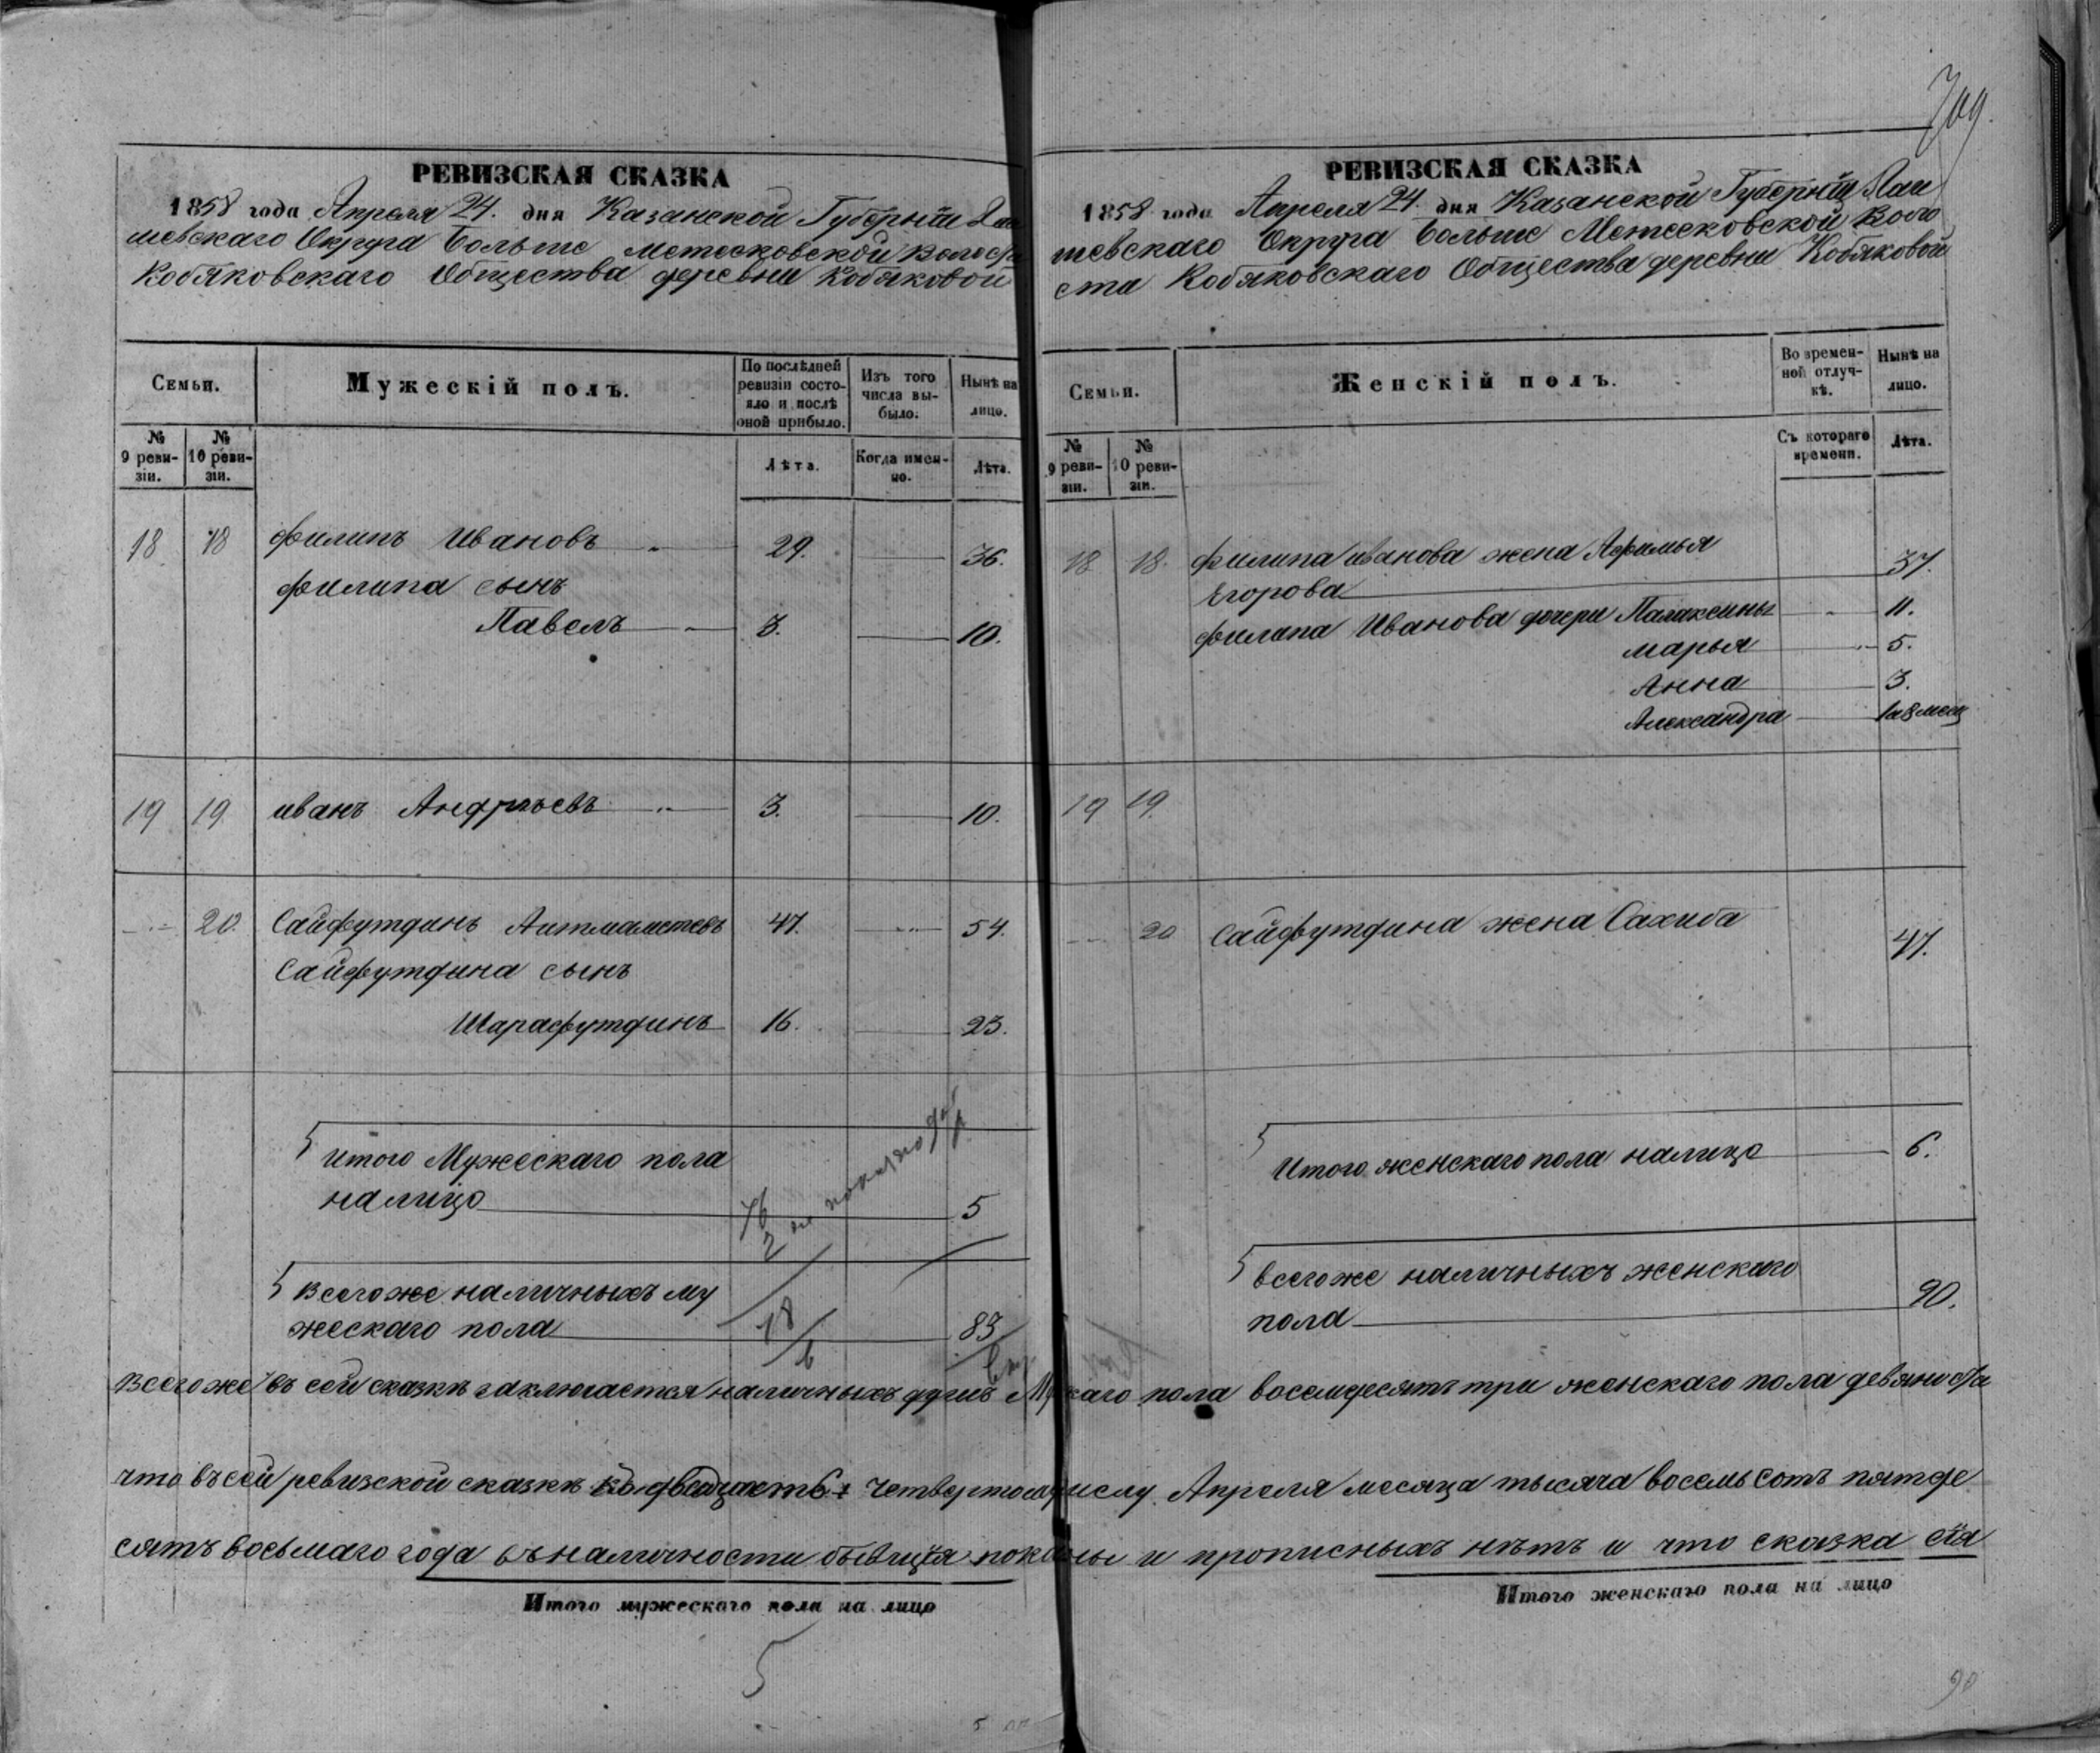 709.
РЕВИЗСКАЯ СКАЗКА
1858 года Апреля 24. дня Казанской Губерніи Лаи
шевскаго Округа Больше Метесковской Волос
Кобяковскаго Общества деревни Кобяковой
Семьи.
Мужескій полъ.
По послѣдней ревизіи состояло и послѣ оной прибыло.
Изъ того числа выбыло.
Нынѣ на лицо.
№ 9 ревизіи.
№ 10 ревизіи.
Лѣта.
Когда именно.
Лѣта.
18 18 Филипъ Ивановъ 29. 36.
Филипа сынъ
Павелъ 3. 10.
19 19 иванъ Андрѣевъ 3. 10.
20. Сайфутдинъ Аитмаметевъ 47. 54.
Сайфутдина сынъ
Шарафутдинъ 16. 23.
итого Мужескаго пола
налицо 5
76
2 не
Всего же наличныхъ му
жескаго пола 83
18
6
РЕВИЗСКАЯ СКАЗКА
1858 года Апреля 24. дня Казанской Губерніи Лаи
шевскаго Округа Больше Метесковской Воло
ста Кобяковскаго Общества деревни Кобяковой
Семьи.
Женскій полъ.
Во временной отлучкѣ.
Нынѣ на лицо.
№ 9 ревизіи.
№ 10 ревизіи.
Съ котораго времени.
Лѣта.
18 18. Филипа иванова жена Афимья
Егорова 37.
Филипа Иванова дочери 11.
марья 5.
Анна 3.
Александра 1 и 8 месец
19 19.
20 Сайфутдина жена Сахиба 47.
Итого женскаго пола налицо 6.
всего же наличныхъ женскаго
пола 90.
Всего же въ сей сказкѣ заключается наличныхъ душъ каго пола восемдесятъ три женскаго пола девяноста
что въ сей ревизской сказкѣ къ двадцать четвертому числу Апреля месяца тысяча восемь сотъ пятде
сятъ восьмаго года въ наличности бывщія показаны и прописныхъ нѣтъ и что сказка сія
Итого мужескаго пола на лицо
5
Итого женскаго пола на лицо
90